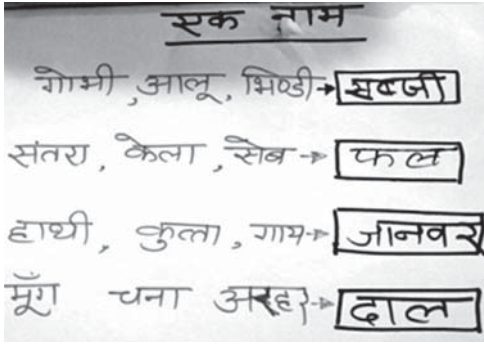 एक नाम
गोभी, आलू, भिण्डी → सब्जी
संतरा, केला, सेब → फल
हाथी, कुत्ता, गाय → जानवर
मूँग चना अरहर → दाल